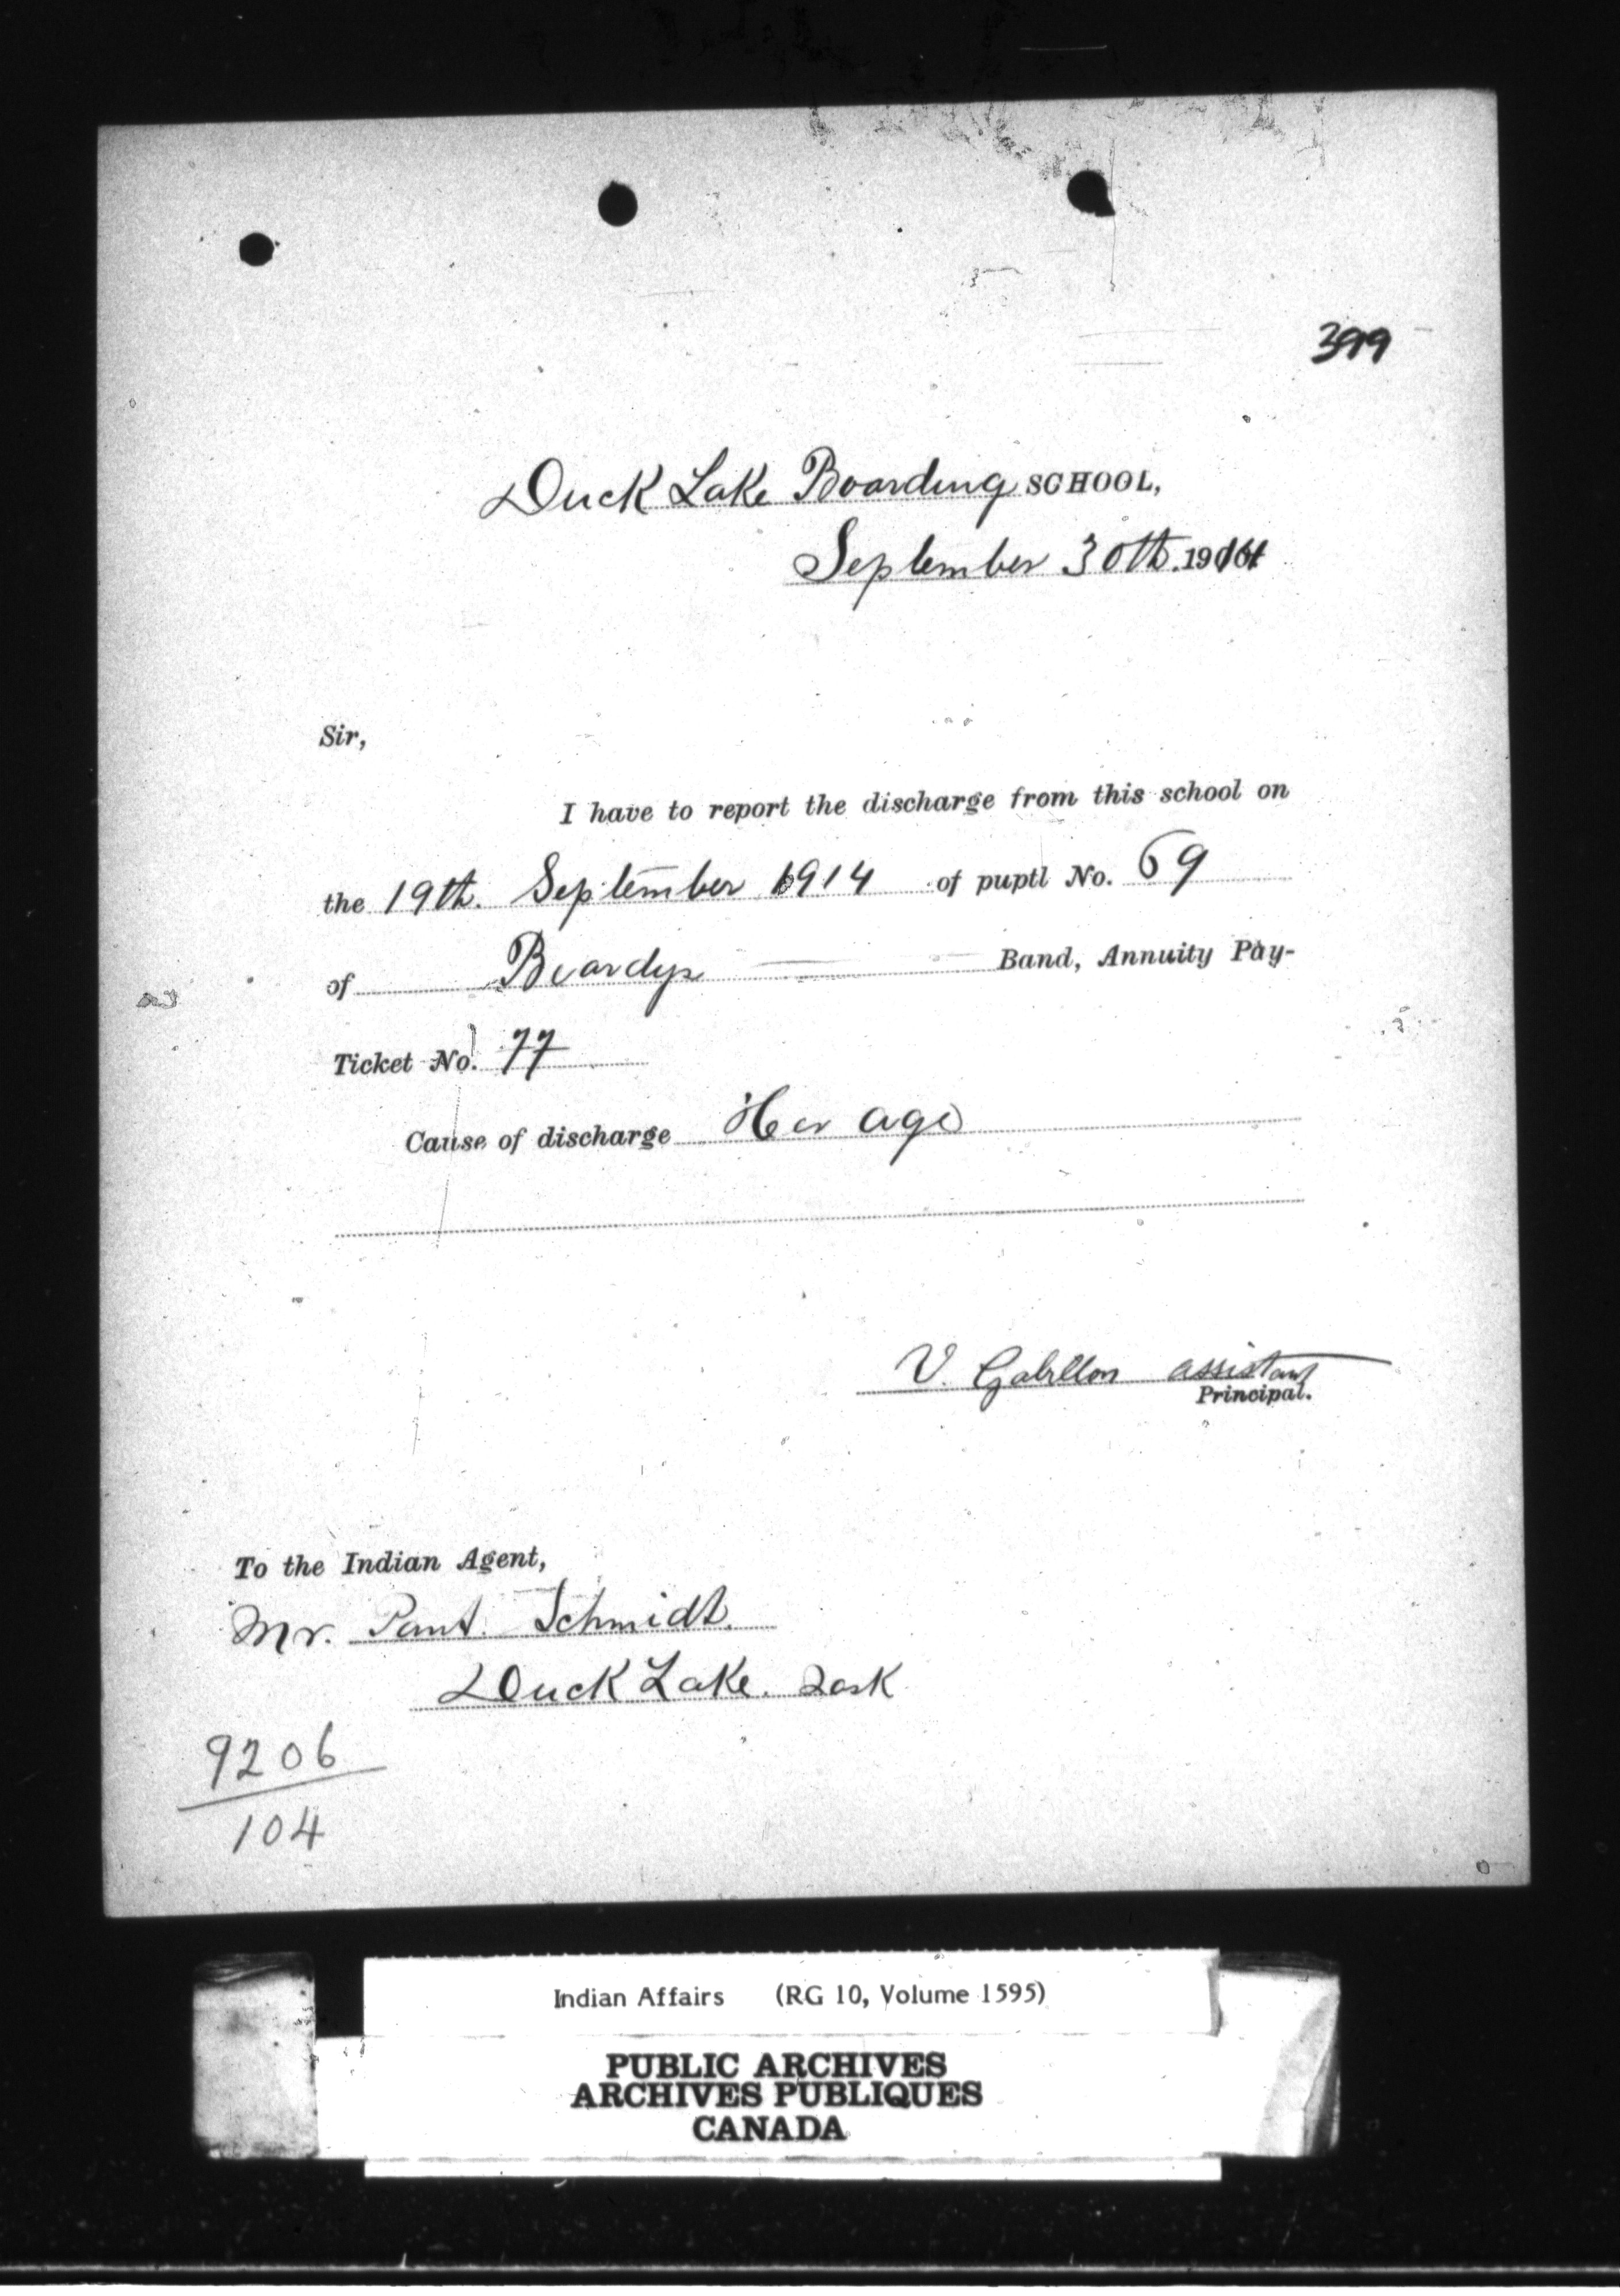 399
Duck Lake Boarding SCHOOL,
September 30th. 1914
Sir,
I have to report the discharge from this school on
the 19th. September 1914 of pupil No. 69
of Beardys Band, Annuity Pay-
Ticket No. 77
Cause of discharge Her age
V. assistant
Principal.
To the Indian Agent,
Mr. Schmidt.
Duck Lake. Sask
9206
104
Indian Affairs (RG 10, Volume 1595)
PUBLIC ARCHIVES
ARCHIVES PUBLIQUES
CANADA